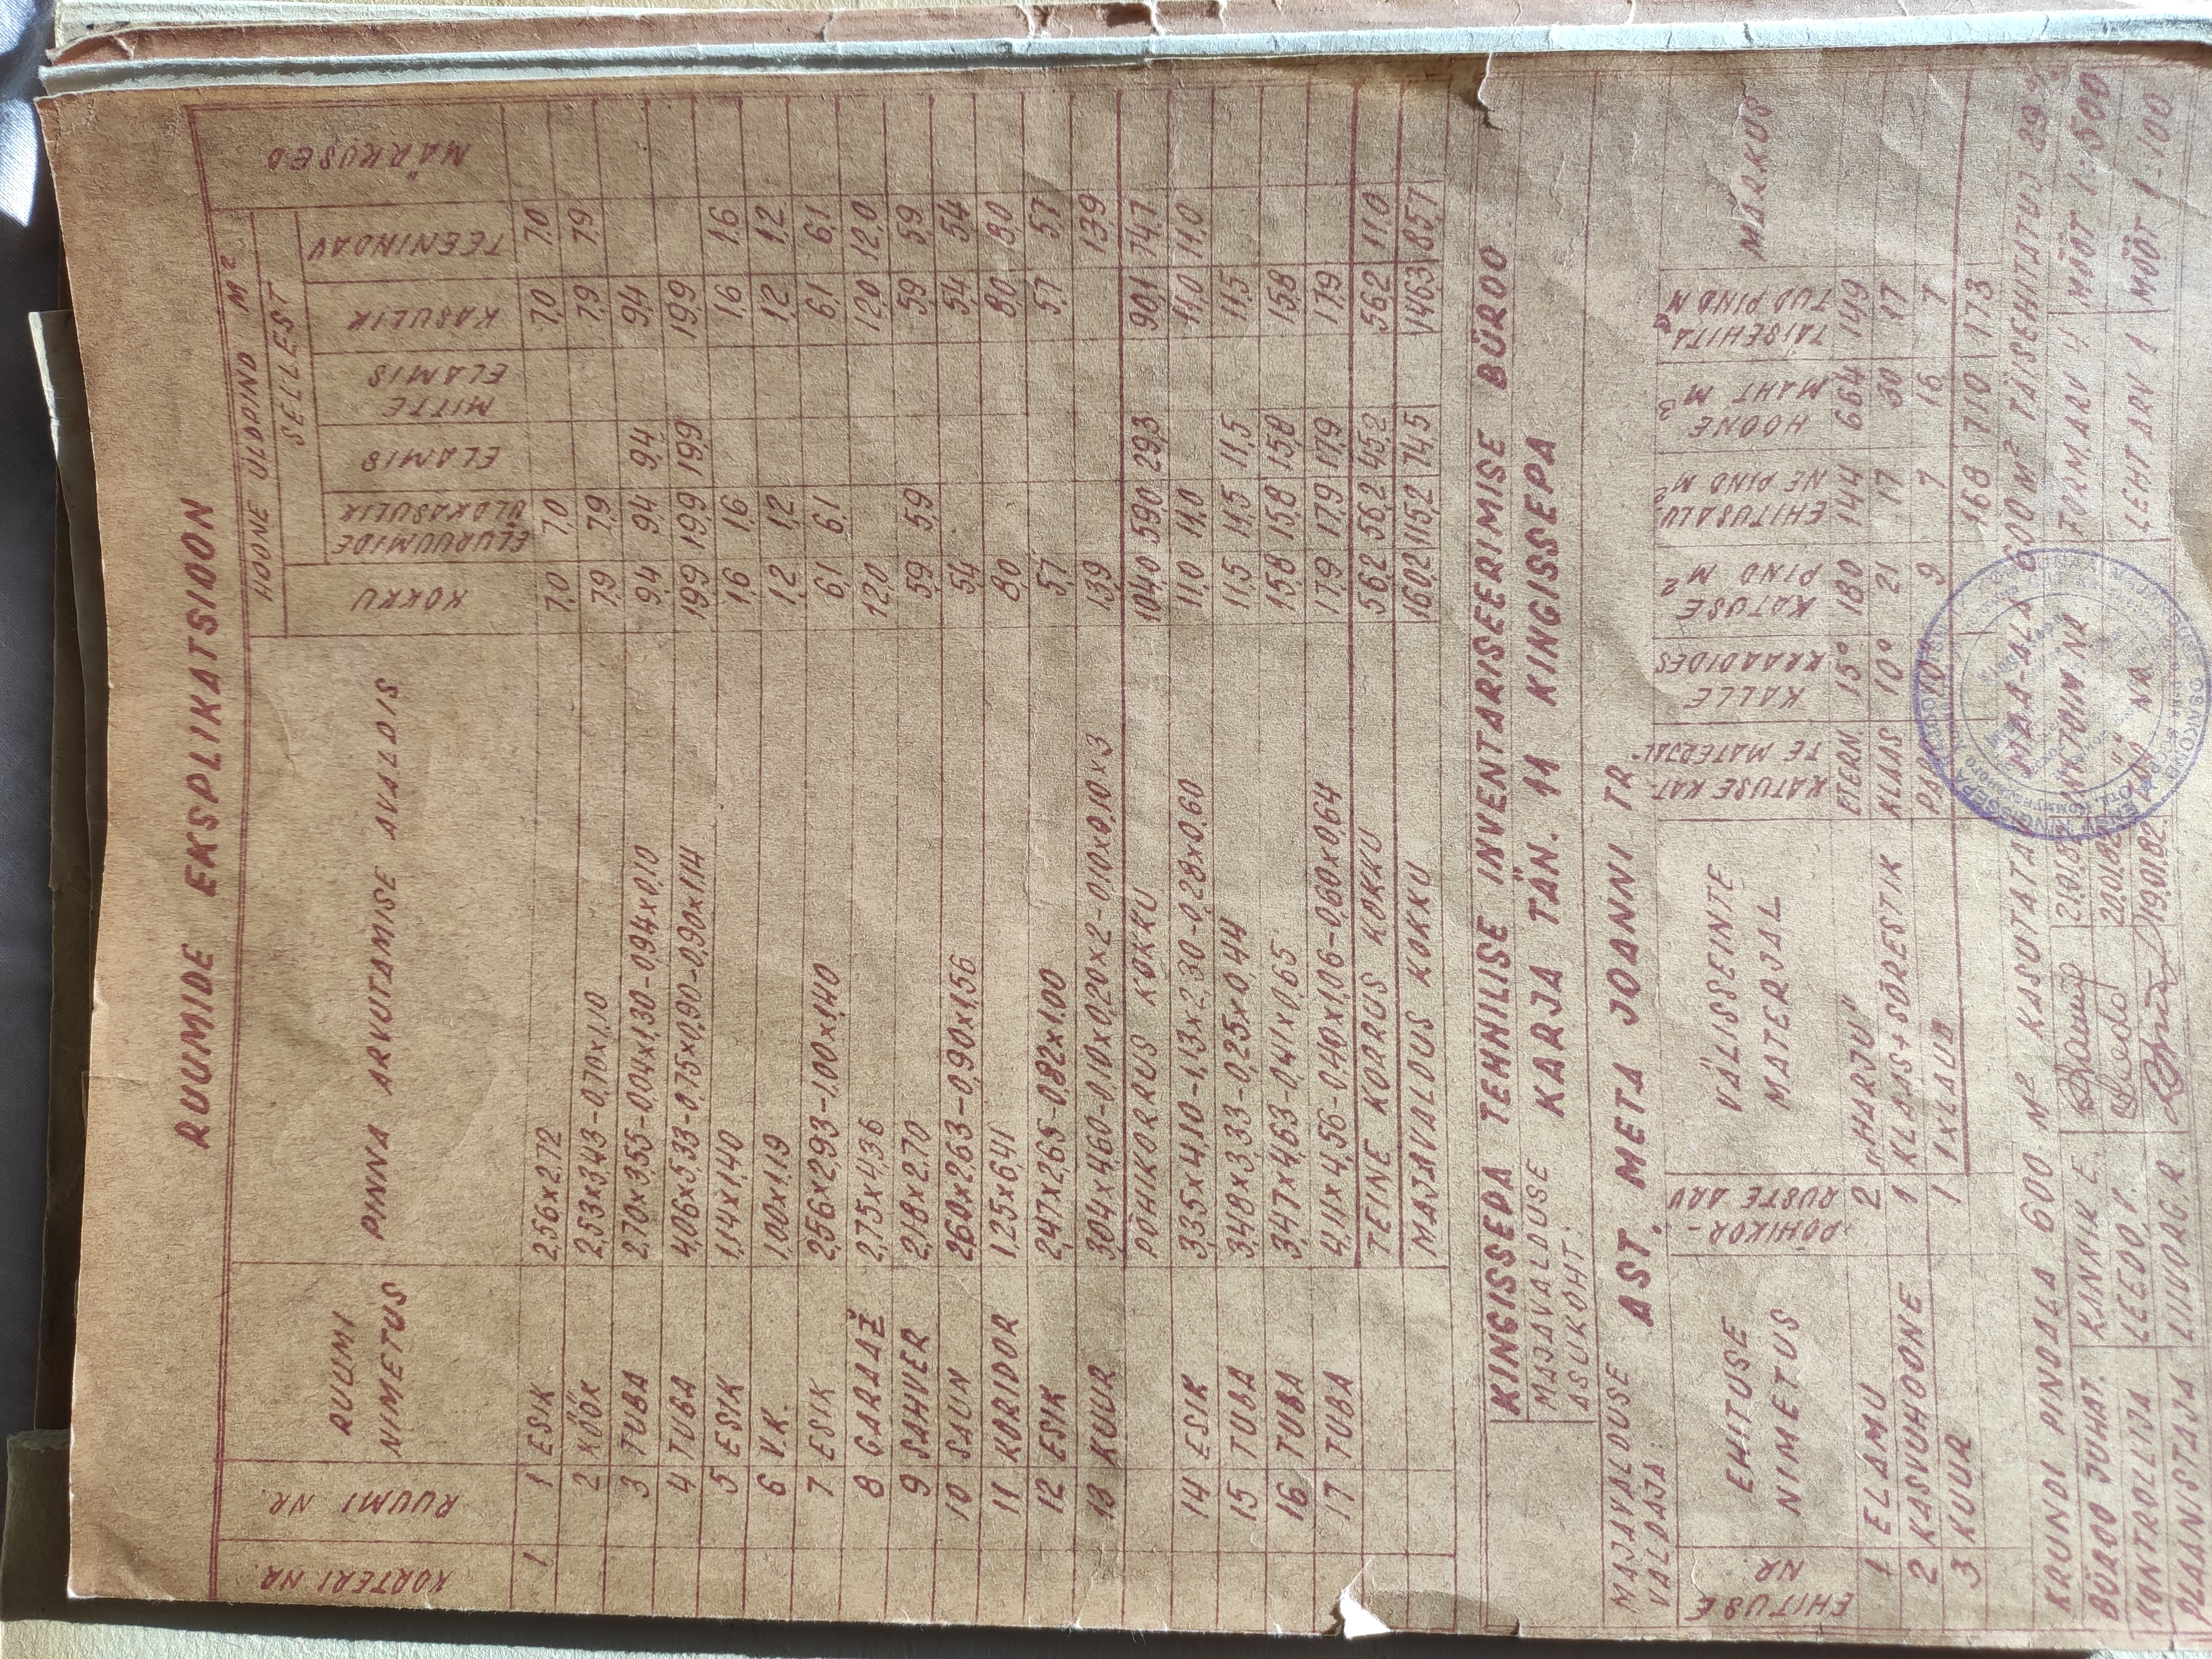 RUUMIDE EKSPLIKATSIOON
KORTERI NR. RUUMI NR. RUUMI NIMETUS PINNA ARVUTAMISE AVALDIS HOONE ÜLDPIND M² MÄRKUSED
SELLEST
KOKKU ELURUUMIDE ÜLDKASULIK ELAMIS MITTE ELAMIS KASULIK TEENINDAV
1 1 ESIK 2,56x2,72 7,0 7,0 7,0 7,0
2 KÖÖK 2,53x3,43-0,70x1,10 7,9 7,9 7,9 7,9
3 TUBA 2,70x3,55-0,04x1,30-0,94x0,10 9,4 9,4 9,4 9,4
4 TUBA 4,06x5,33-0,75x0,90-0,90x1,14 19,9 19,9 19,9 19,9
5 ESIK 1,14x1,40 1,6 1,6 1,6 1,6
6 V.K. 1,00x1,19 1,2 1,2 1,2 1,2
7 ESIK 2,56x2,93-1,00x1,40 6,1 6,1 6,1 6,1
8 GARAAŽ 2,75x4,36 12,0 12,0 12,0
9 SAHVER 2,18x2,70 5,9 5,9 5,9 5,9
10 SAUN 2,60x2,63-0,90x1,56 5,4 5,4 5,4
11 KORIDOR 1,25x6,41 8,0 8,0 8,0
12 ESIK 2,47x2,65-0,82x1,00 5,7 5,7 5,7
13 KUUR 3,04x4,60-0,10x0,20x2-0,10x0,10x3 13,9 13,9
PÕHIKORRUS KOKKU 104,0 59,0 29,3 90,1 74,7
14 ESIK 3,35x4,10-1,13x2,30-0,28x0,60 11,0 11,0 11,0 11,0
15 TUBA 3,48x3,33-0,25x0,44 11,5 11,5 11,5 11,5
16 TUBA 3,47x4,63-0,41x0,65 15,8 15,8 15,8 15,8
17 TUBA 4,11x4,56-0,40x1,06-0,60x0,64 17,9 17,9 17,9 17,9
TEINE KORRUS KOKKU 56,2 56,2 45,2 56,2 11,0
MAJAVALDUS KOKKU 160,2 115,2 74,5 146,3 85,7
KINGISSEPA TEHNILISE INVENTARISEERIMISE BÜROO
MAJAVALDUSE ASUKOHT: KARJA TÄN. 11 KINGISSEPA
MAJAVALDUSE VALDAJA: AST. META JOANNI TR.
EHITUSE NR EHITUSE NIMETUS PÕHIKORRUSTE ARV VÄLISSEINTE MATERJAL KATUSE KATTE MATERJAL KALLE KRAADIDES KATUSE PIND M² EHITUSALUNE PIND M² HOONE MAHT M³ TÄISEHITATUD PIND M² MÄRKUS
1 ELAMU 2 "HARJU" ETERN. 15° 180 144 664 149
2 KASVUHOONE 1 KLAAS+SÕRESTIK KLAAS 10° 21 17 30 17
3 KUUR 1 1xLAUD 10° 9 7 16 7
168 710 173
KRUNDI PINDALA 600 M² KASUTATAV MAA-ALA 600 M² TÄISEHITATUD 29
BÜROO JUHAT. KANNIK E. FORM.ARV 4 MÕÕT 1:500
KONTROLLIJA LEEDO, V. LEHT ARV 1 MÕÕT 1-100
PLAANISTAJA LIIVORG.R. 19.01.82.